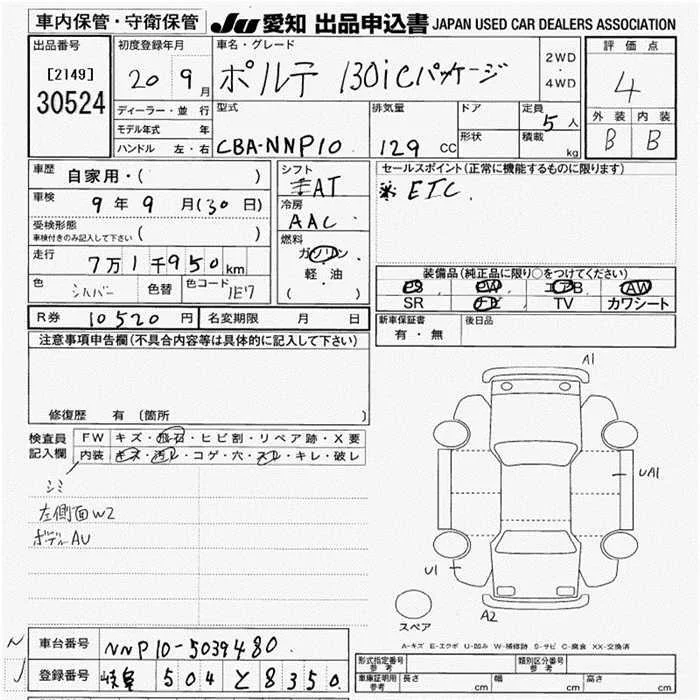 車内保管・守衛保管
JU 愛知 出品申込書 JAPAN USED CAR DEALERS ASSOCIATION
出品番号
[2149]
30524
初度登録年月
20 9月
車名・グレード
ポルテ 130iCパッケージ
2WD
・
4WD
評価点
4
外装 内装
B B
ディーラー・並行
モデル年式 年
ハンドル 左・右
型式
CBA-NNP10
排気量
129 CC
ドア
形状
定員
5人
積載
kg
車歴
自家用・( )
車検
9年9月(30日)
受検形態
車検付きのみ記入して下さい ( )
走行
7万1千950km
色
シルバー
色替
色コード
1E7
シフト
AT
冷房
AAC
燃料
ガソリン
・
軽・油
( )
セールスポイント(正常に機能するものに限ります)
※ETC.
装備品(純正品に限り○をつけてください)
PS PW エアB AW
SR ナビ TV カワシート
R券 10520円 名変期限 月 日
新車保証書
有・無
後日品
注意事項申告欄(不具合内容等は具体的に記入して下さい)
修復歴 有 (箇所 )
検査員
記入欄
FW キズ・飛石・ヒビ割・リペア跡・X要
内装 キズ・汚レ・コゲ・穴・スレ・キレ・破レ
シミ
左側面W2
ボデーAU
A1
UA1
U1
A2
スペア
A-キズ E-エクボ U-凹み W-補修跡 S-サビ C-腐食 XX-交換済
車台番号 NNP10-5039480
登録番号 岐阜 504 と 8350
型式指定番号
参考
類別区分番号
参考
車庫証明用
参考
長さ cm 幅 cm 高さ cm